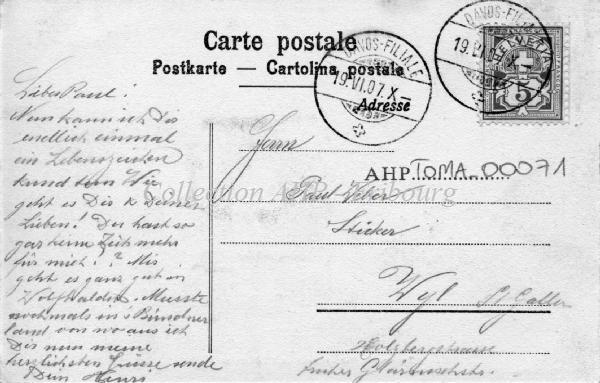 Carte postale
Postkarte — Cartolina postale
Adresse
DAVOS-FILIALE
19.VI.07.X
DAVOS-FILIALE
19.VI.0
HELVETIA
5
AHP TOMA_00071
Collection AHP Fribourg
Lieber Paul!
Nun kann ich Dir
endlich einmal
ein Lebenszeichen
kund tun Wie
geht es Dir & Deinen
Lieben! Du hast so
gar keine Zeit mehr
für mich!? Mir
geht es ganz gut in
Wolfhalden. Musste
nochmals ins Bündner
land von wo aus ich
Dir nun meine
herzlichsten Grüsse sende
Dein Henri
Herrn
Paul
Sticker
Wyl St. Gallen
früher